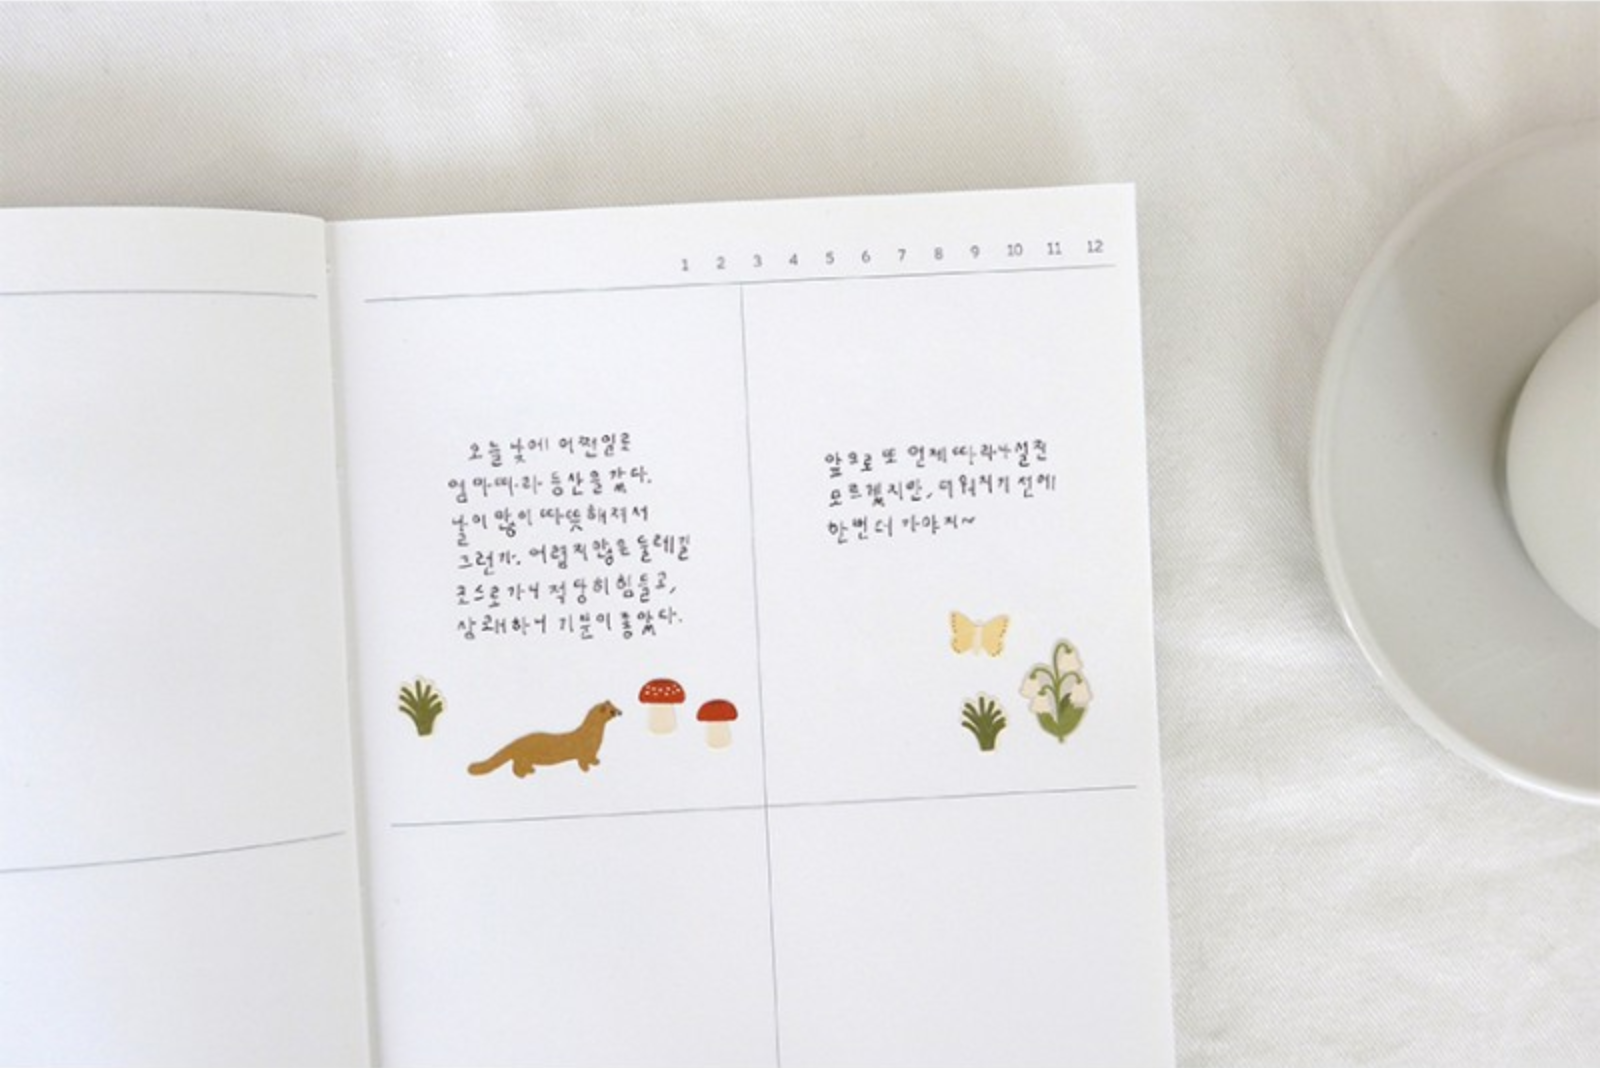 1 2 3 4 5 6 7 8 9 10 11 12
오늘 낮에 어쩐일로
엄마따라 등산을 갔다.
날이 많이 따뜻해져서
그런가. 어렵지않은 둘레길
코스로 가니 적당히 힘들고,
상쾌하니 기분이 좋았다.
앞으로 또 언제 따라나설진
모르겠지만, 더워지기 전에
한번 더 가야지~